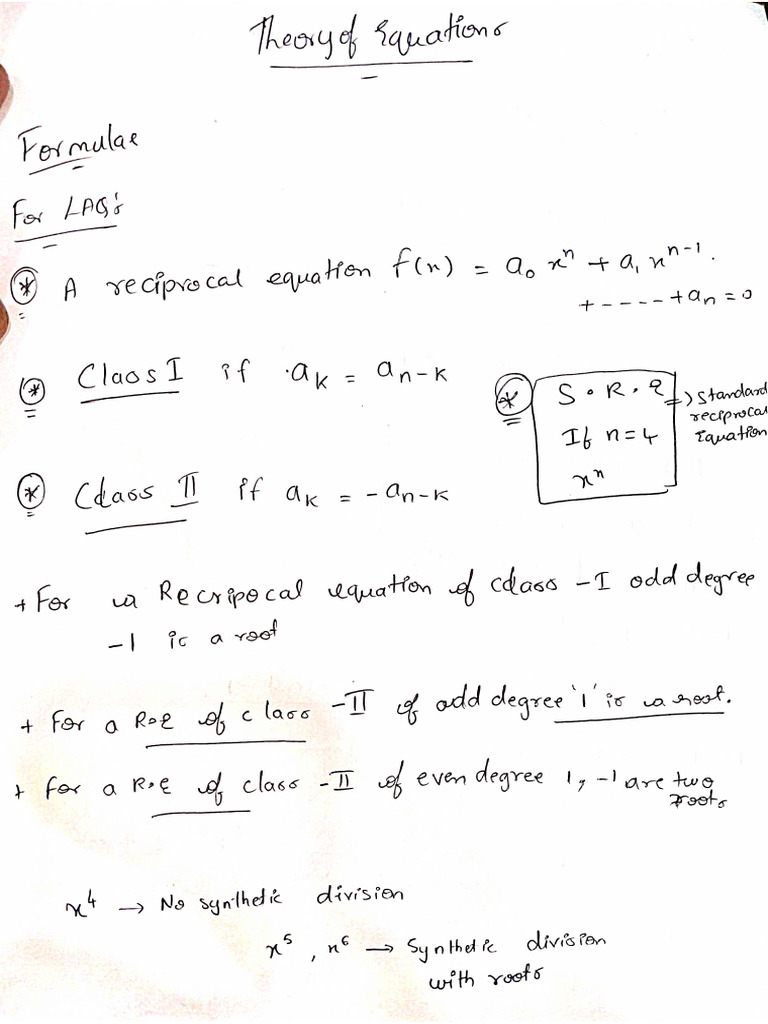 Theory of Equations
Formulae
For LAQ's
* A reciprocal equation f(x) = a₀ xⁿ + a₁ xⁿ⁻¹.
+ ---- + aₙ = 0
* Class I if aₖ = aₙ₋ₖ
* S.R.E => Standard
reciprocal
Equation
If n = 4
xⁿ
* Class II if aₖ = - aₙ₋ₖ
+ For a Recripocal equation of class - I odd degree
-1 is a root
+ For a R.E of class - II of odd degree '1' is a root.
+ For a R.E of class - II of even degree 1, -1 are two
roots
x⁴ → No synthetic division
x⁵, x⁶ → Synthetic division
with roots